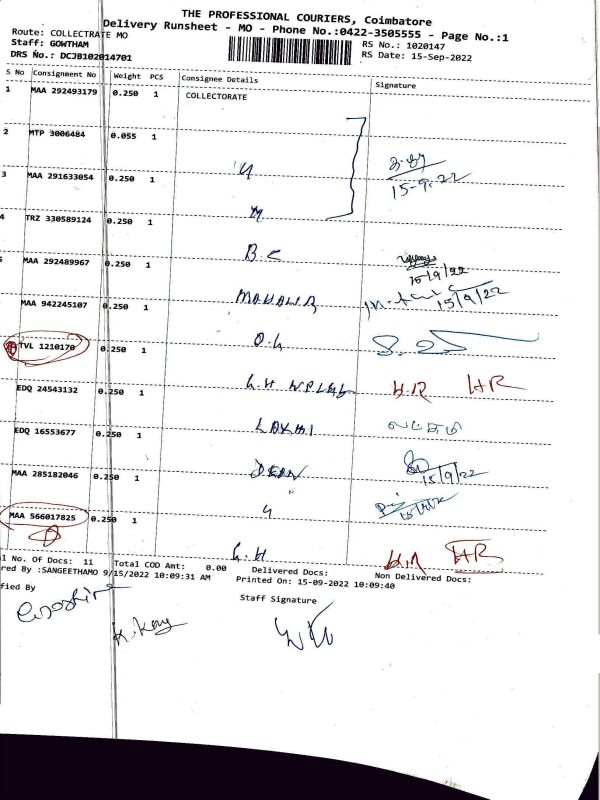 THE PROFESSIONAL COURIERS, Coimbatore
Delivery Runsheet - MO - Phone No.:0422-3505555 - Page No.:1
Route: COLLECTRATE MO
RS No.: 1020147
Staff: GOWTHAM
RS Date: 15-Sep-2022
DRS No.: DCJB102014701
S No Consignment No Weight PCS Consignee Details Signature
1 MAA 292493179 0.250 1 COLLECTORATE
2 MTP 3006484 0.055 1
15-9-22
3 MAA 291633054 0.250 1
4 TRZ 330589124 0.250 1
B.C
MAA 292489967 0.250 1
15/9/22
MAA 942245107 0.250 1
15/9/22
TVL 1210170 0.250 1
G.H H.R HR
EDQ 24543132 0.250 1
LAXMI லட்சுமி
EDQ 16553677 0.250 1
DEAN 15/9/22
MAA 285182046 0.250 1
MAA 566017825 0.250 1
G.H H.R HR
l No. Of Docs: 11 Total COD Amt: 0.00 Delivered Docs: Non Delivered Docs:
red By :SANGEETHAMO 9/15/2022 10:09:31 AM Printed On: 15-09-2022 10:09:40
fied By
Staff Signature